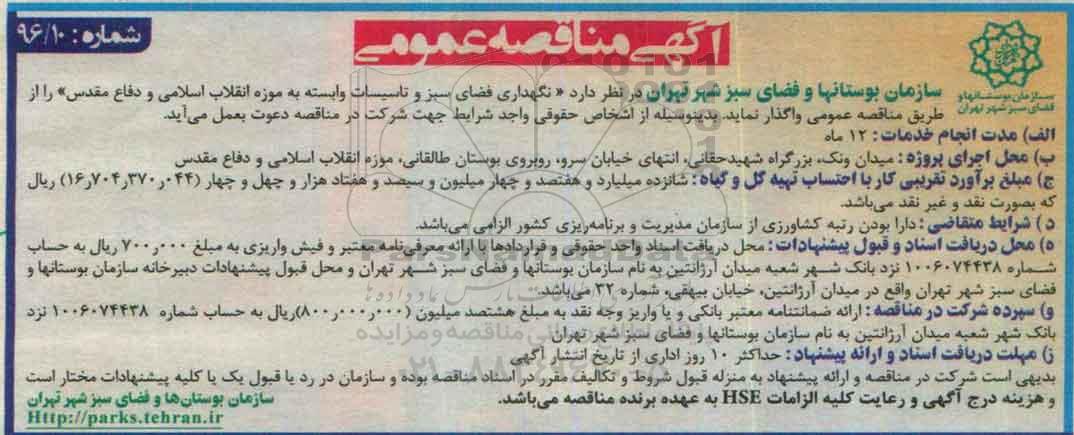 شماره: ۹۶/۱۰
آگهی مناقصه عمومی
سازمان بوستانها و فضای سبز شهر تهران
سازمان بوستانها و فضای سبز شهر تهران در نظر دارد « نگهداری فضای سبز و تاسیسات وابسته به موزه انقلاب اسلامی و دفاع مقدس» را از
طریق مناقصه عمومی واگذار نماید. بدینوسیله از اشخاص حقوقی واجد شرایط جهت شرکت در مناقصه دعوت بعمل می‌آید.
الف) مدت انجام خدمات: ۱۲ ماه
ب) محل اجرای پروژه: میدان ونک، بزرگراه شهیدحقانی، انتهای خیابان سرو، روبروی بوستان طالقانی، موزه انقلاب اسلامی و دفاع مقدس
ج) مبلغ برآورد تقریبی کار با احتساب تهیه گل و گیاه: شانزده میلیارد و هفتصد و چهار میلیون و سیصد و هفتاد هزار و چهل و چهار (۱۶ر۷۰۴ر۳۷۰ر۰۴۴) ریال
که بصورت نقد و غیر نقد می‌باشد.
د) شرایط متقاضی: دارا بودن رتبه کشاورزی از سازمان مدیریت و برنامه‌ریزی کشور الزامی می‌باشد.
ه) محل دریافت اسناد و قبول پیشنهادات: محل دریافت اسناد واحد حقوقی و قراردادها با ارائه معرفی‌نامه معتبر و فیش واریزی به مبلغ ۷۰۰ر۰۰۰ ریال به حساب
شماره ۱۰۰۶۰۷۴۴۳۸ نزد بانک شهر شعبه میدان آرژانتین به نام سازمان بوستانها و فضای سبز شهر تهران و محل قبول پیشنهادات دبیرخانه سازمان بوستانها و
فضای سبز شهر تهران واقع در میدان آرژانتین، خیابان بیهقی، شماره ۳۲ می‌باشد.
و) سپرده شرکت در مناقصه: ارائه ضمانتنامه معتبر بانکی و یا واریز وجه نقد به مبلغ هشتصد میلیون (۸۰۰ر۰۰۰ر۰۰۰)ریال به حساب شماره ۱۰۰۶۰۷۴۴۳۸ نزد
بانک شهر شعبه میدان آرژانتین به نام سازمان بوستانها و فضای سبز شهر تهران
ز) مهلت دریافت اسناد و ارائه پیشنهاد: حداکثر ۱۰ روز اداری از تاریخ انتشار آگهی
بدیهی است شرکت در مناقصه و ارائه پیشنهاد به منزله قبول شروط و تکالیف مقرر در اسناد مناقصه بوده و سازمان در رد یا قبول یک یا کلیه پیشنهادات مختار است
و هزینه درج آگهی و رعایت کلیه الزامات HSE به عهده برنده مناقصه می‌باشد.
سازمان بوستان‌ها و فضای سبز شهر تهران
Http://parks.tehran.ir
ParsNamadData